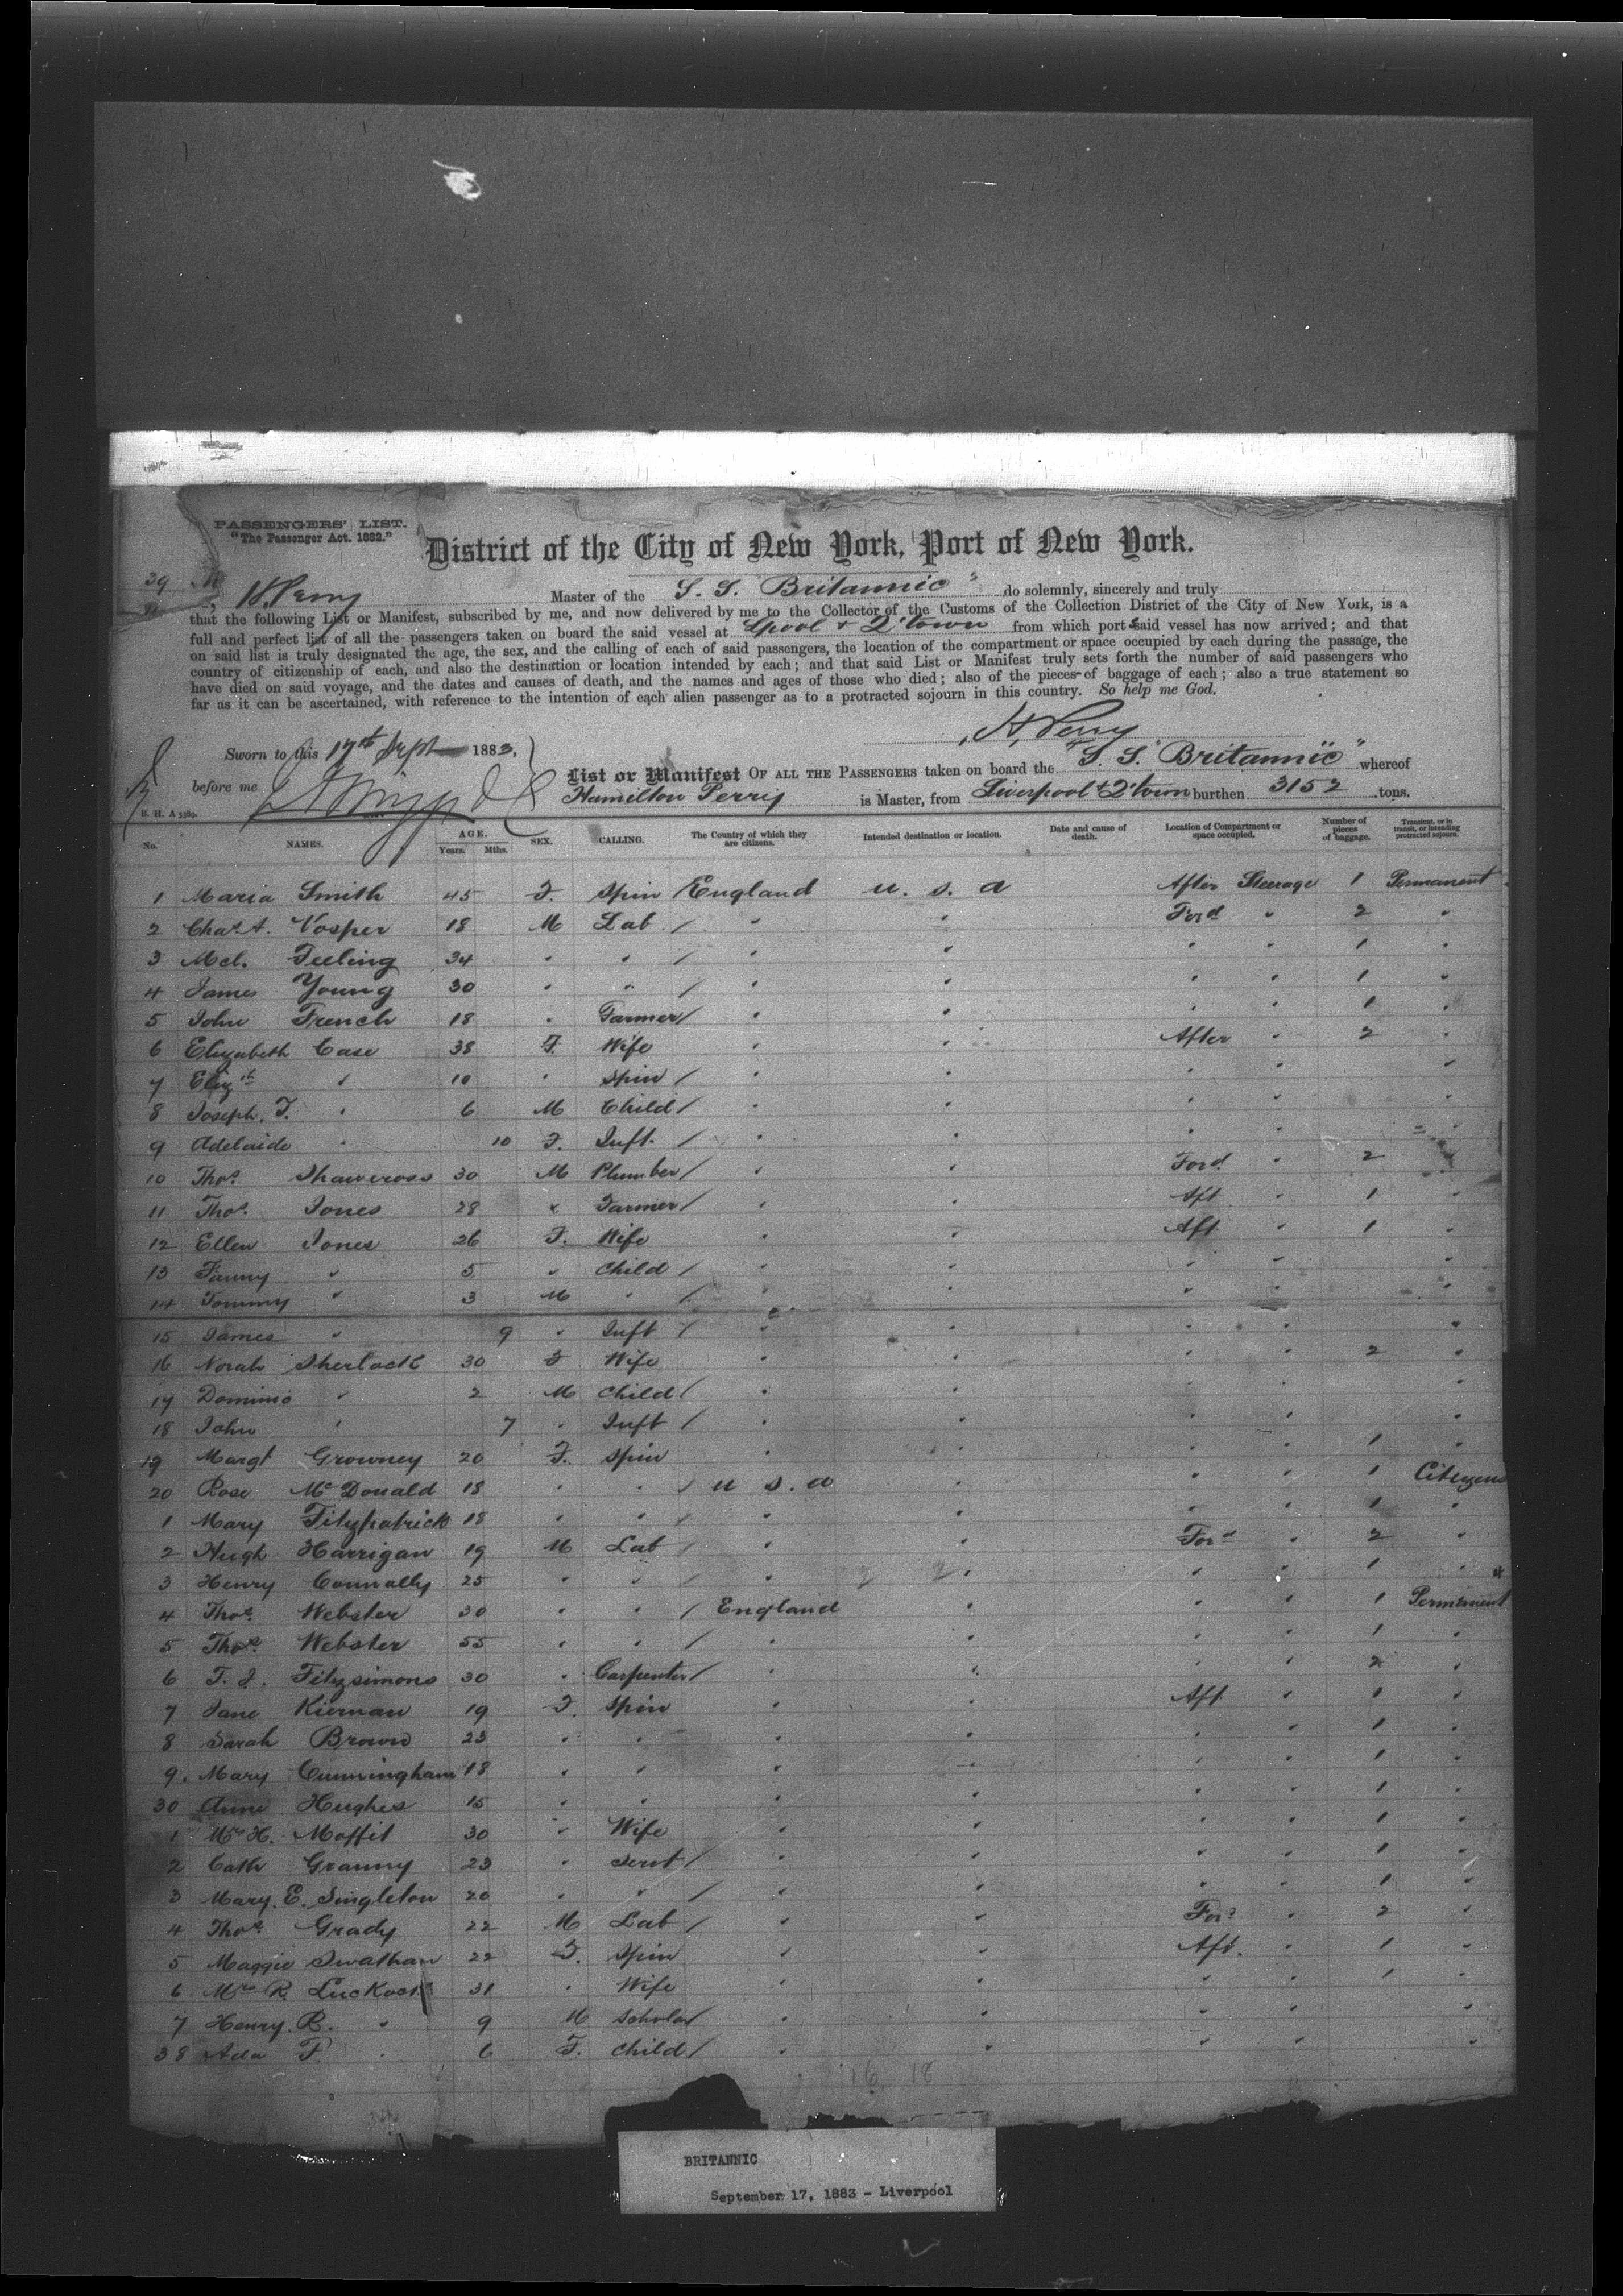 PASSENGERS' LIST.
"The Passenger Act. 1882."
District of the City of New York, Port of New York.
39
I, H. Perry Master of the S. S. "Britannic" do solemnly, sincerely and truly
that the following List or Manifest, subscribed by me, and now delivered by me to the Collector of the Customs of the Collection District of the City of New York, is a
full and perfect list of all the passengers taken on board the said vessel at L'pool & Q'town from which port said vessel has now arrived; and that
on said list is truly designated the age, the sex, and the calling of each of said passengers, the location of the compartment or space occupied by each during the passage, the
country of citizenship of each, and also the destination or location intended by each; and that said List or Manifest truly sets forth the number of said passengers who
have died on said voyage, and the dates and causes of death, and the names and ages of those who died; also of the pieces of baggage of each; also a true statement so
far as it can be ascertained, with reference to the intention of each alien passenger as to a protracted sojourn in this country. So help me God.
H. Perry
Sworn to this 17th Sept 1883,
before me
List or Manifest OF ALL THE PASSENGERS taken on board the "S. S. Britannic" whereof
Hamilton Perry is Master, from Liverpool & Q'town burthen 3152 tons.
B. H. A
No. NAMES. AGE. Years. Mths. SEX. CALLING. The Country of which they are citizens. Intended destination or location. Date and cause of death. Location of Compartment or space occupied. Number of pieces of baggage. Transient, or in transit, or intending protracted sojourn.
1 Maria Smith 45 F. Spin / England U. S. A After Steerage 1 Permanent
2 Chas. A. Vosper 18 M Lab / " " Ford " 2 "
3 Mcl. Feeling 34 " " / " " " " 1 "
4 James Young 30 " " / " " " " 1 "
5 John French 18 " Farmer / " " " " 1 "
6 Elizabeth Case 38 F. Wife " " After " 2 "
7 Elizth " 10 " Spin / " " " " "
8 Joseph. F. " 6 M Child / " " " " "
9 Adelaide " 10 F. Inft. / " " " " "
10 Thos. Shawcross 30 M Plumber / " " Ford. " 2
11 Thos. Jones 28 " Farmer / " " Aft " 1 "
12 Ellen Jones 26 F. Wife " " Aft " 1 "
13 Fanny " 5 " Child / " " " " "
14 Tommy " 3 M " / " " " " "
15 James " 9 " Inft / " " " " "
16 Norah Sherlock 30 F Wife " " " " 2 "
17 Dominic " 2 M Child / " " " " "
18 John " 7 " Inft / " " " " "
19 Margt Growney 20 F. Spin " " " " 1 "
20 Rose McDonald 18 " " / U S. A " " " 1 Citizens
1 Mary Fitzpatrick 18 " " / " " " " 1 "
2 Hugh Harrigan 19 M Lab / " " Ford " 2 "
3 Henry Connolly 25 " " / " " " " 1 "
4 Thos. Webster 30 " " / England " " " 1 Permanent
5 Thos. Webster 55 " " / " " " " 1 "
6 T. J. Fitzsimons 30 " Carpenter / " " " " 2 "
7 Jane Kiernan 19 F. Spin " " Aft " 1 "
8 Sarah Brown 23 " " " " " " 1 "
9. Mary Cunningham 18 " " " " " " 1 "
30 Anne Hughes 15 " " " " " " 1 "
1 Mrs H. Moffit 30 " Wife " " " " 1 "
2 Cath Granny 23 " Servt / " " " " 1 "
3 Mary. E. Singleton 20 " " / " " " " 1 "
4 Thos. Grady 22 M Lab / " " Ford " 2 "
5 Maggie 22 F. Spin " " Aft. " 1 "
6 Mrs R. 31 " Wife " " " " 1 "
7 Henry. R. " 9 M Scholar / " " " " "
38 Ada F. " 6 F. Child / " " " " "
16 18
BRITANNIC
September 17, 1883 - Liverpool